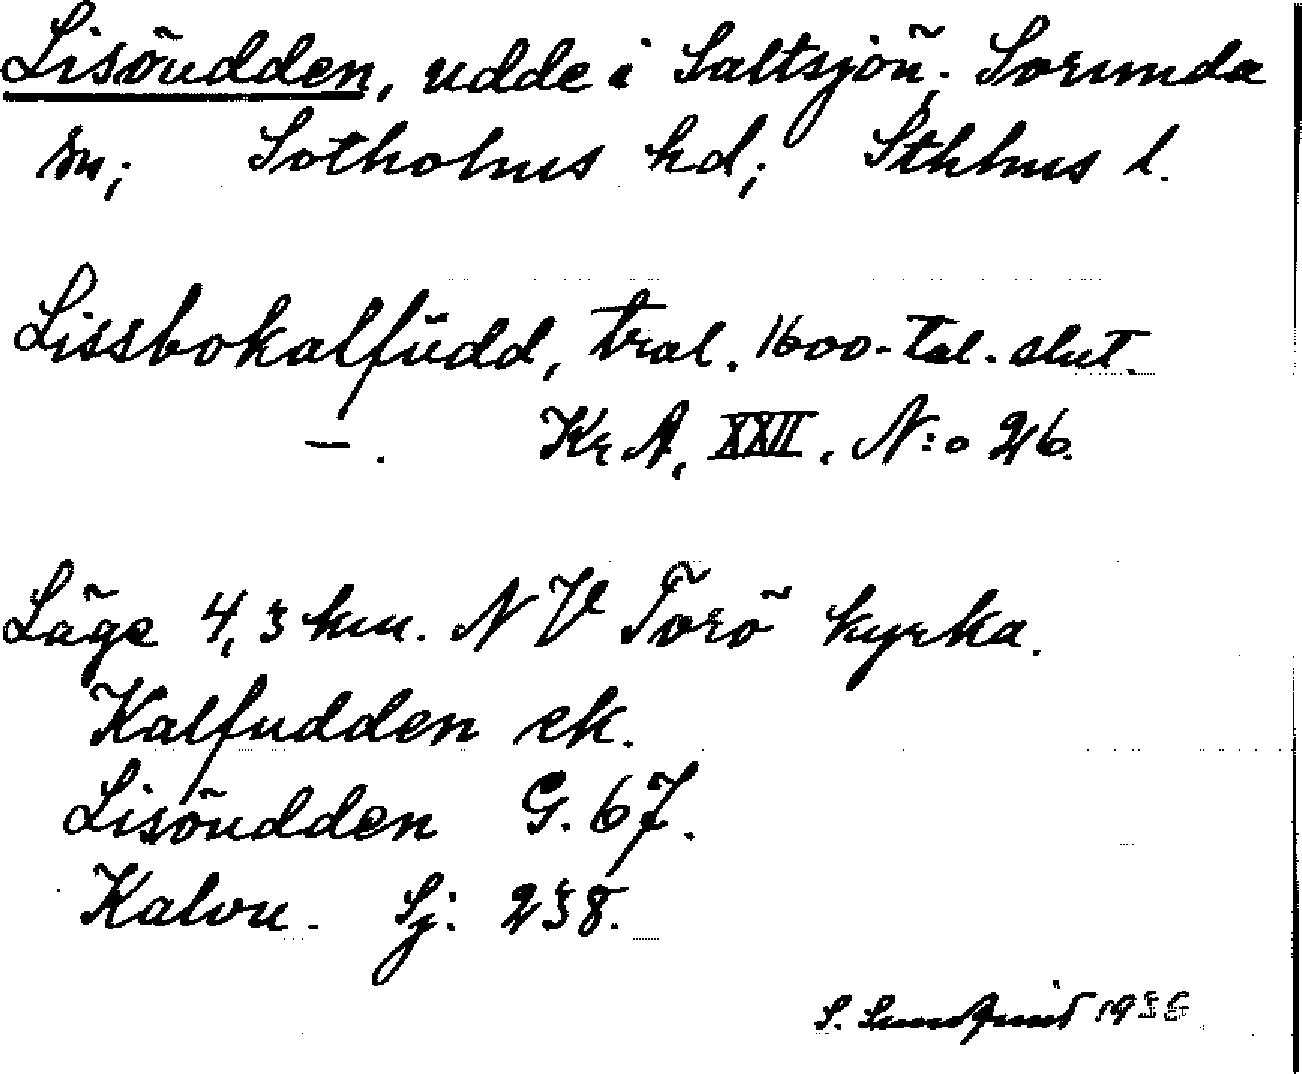 Lisöudden, udde i Saltsjön. Sorunda
sn; Sotholms hd; Sthlms l.
Lissbokalfüdd, tral. 1600-tal. slut.
—. Kr. A, XXII, N:o 26.
Läge 4,3 km. NV Torö kyrka.
Kalfudden ek.
Lisöudden G. 67.
Kalvu. Sj: 238.
S. Sundqvist